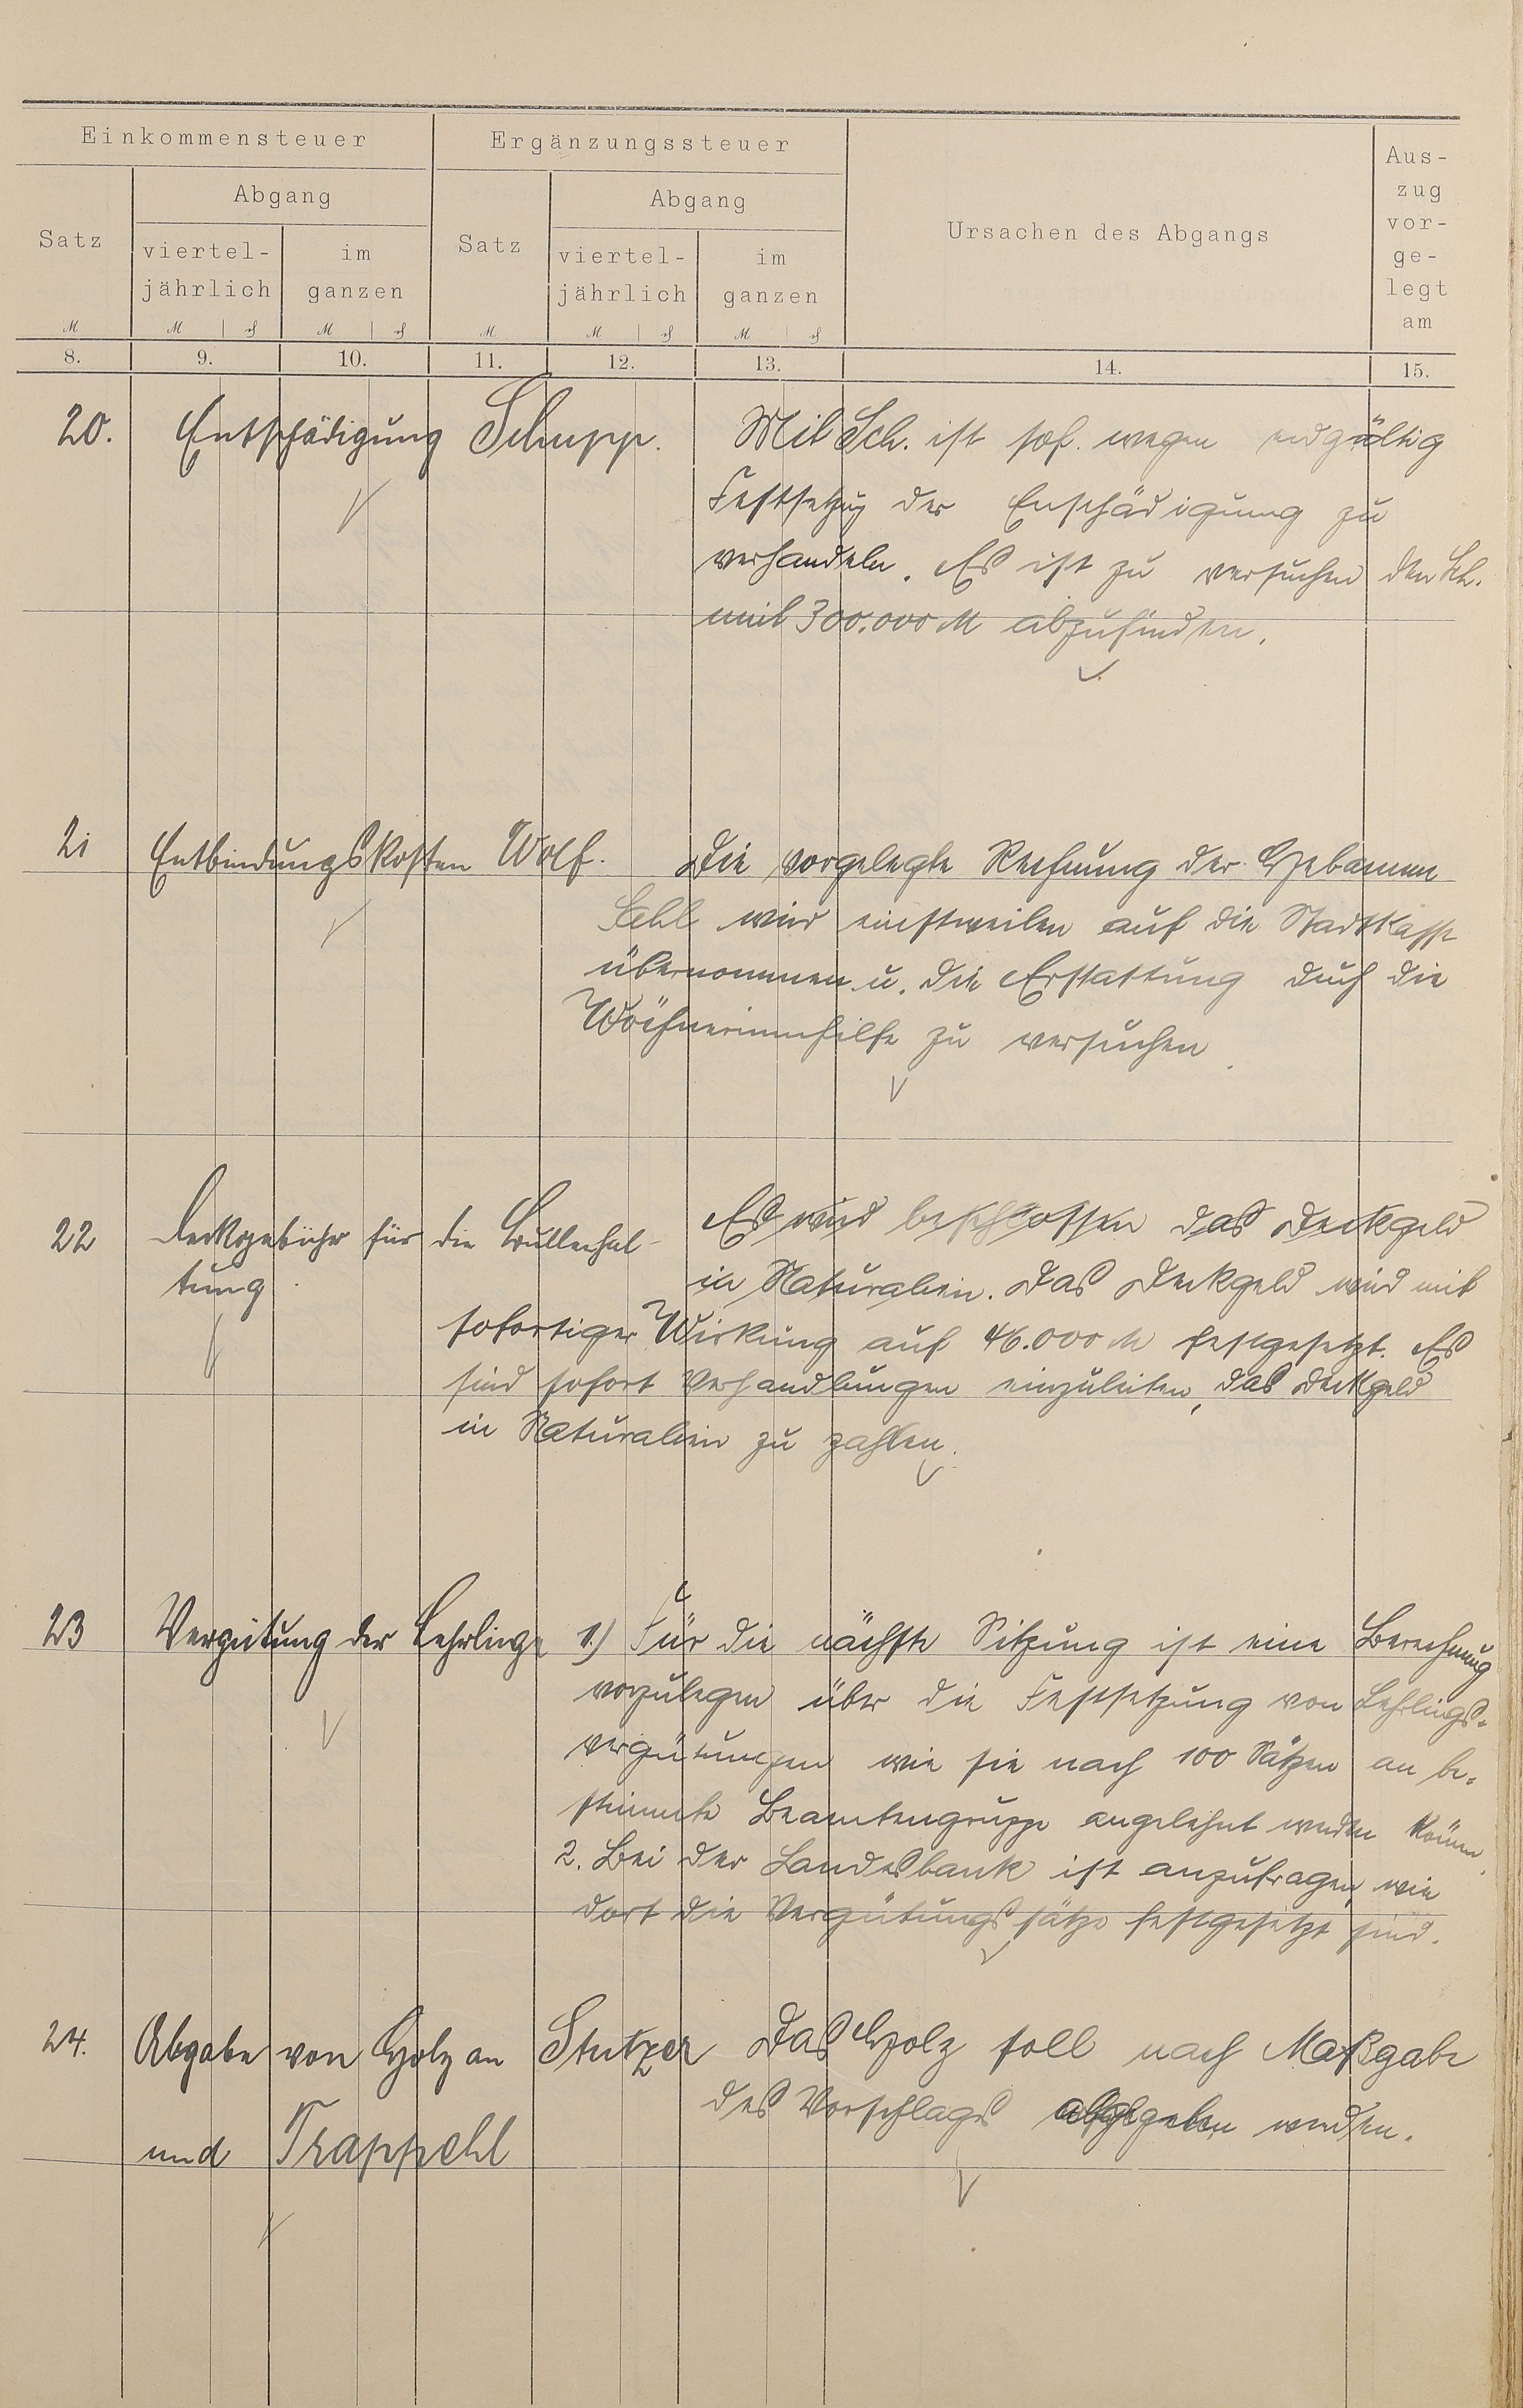 Einkommensteuer Ergänzungssteuer Ursachen des Abgangs Aus-
zug
vor-
ge-
legt
am
Satz Abgang Satz Abgang
viertel-
jährlich im
ganzen viertel-
jährlich im
ganzen
M M M M M M
8. 9. 10. 11. 12. 13. 14. 15.
20. Entschädigung Schupp. Mit Sch. ist sof. wegen endgültig
Festsetzg der Enschädigung zu
verhandeln. Es ist zu versuchen den Sch.
mit 300.000 M abzufinden.
21 Entbindungskosten Wolf. Die vorgelegte Rechnung der Hebamme
wird einstweilen auf die Stadtkasse
übernommen u. die Erstattung durch die
Wöchnerinnhilfe zu versuchen.
22 Deckgebühr für die Bullenhal- Es wird beschlossen das Deckgeld
tung. in Naturalien. Das Deckgeld wird mit
sofortiger Wirkung auf 46.000 M festgesetzt. Es
sind sofort Verhandlungen einzuleiten, das Deckgeld
in Naturalien zu zahlen.
23 Vergütung der Lehrlinge 1.) Für die nächste Sitzung ist eine Berechnung
vorzulegen über die Festsetzung von Lehrlings-
vergütungen wie sie nach 100 Sätzen an be-
stimmte Beamtengruppe angelehnt werden könn.
2. Bei der Landesbank ist anzufragen, wie
dort die Vergütungssätze festgesetzt sind.
24. Abgabe von Holz an Stutzer Das Holz soll nach Maßgabe
des Vorschlags abgegeben werden.
und Trappehl